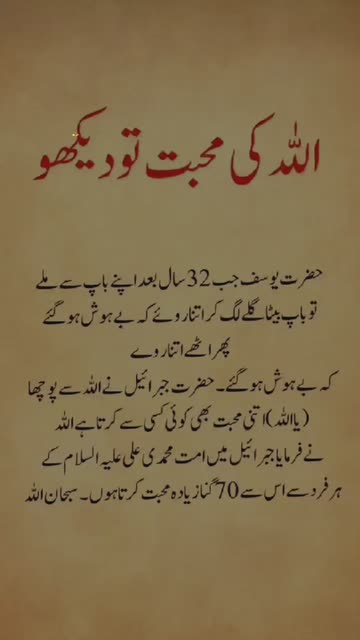 اللہ کی محبت تو دیکھو
حضرت یوسف جب 32 سال بعد اپنے باپ سے ملے
تو باپ بیٹا گلے لگ کر اتنا روئے کہ بے ہوش ہو گئے
پھر اٹھے اتنا روے
کہ بے ہوش ہو گئے۔ حضرت جبرائیل نے اللہ سے پوچھا
(یا اللہ) اتنی محبت بھی کوئی کسی سے کرتا ہے اللہ
نے فرمایا جبرائیل میں امت محمدی علی علیہ السلام کے
ہر فرد سے اس سے 70 گنا زیادہ محبت کرتا ہوں۔ سبحان اللہ